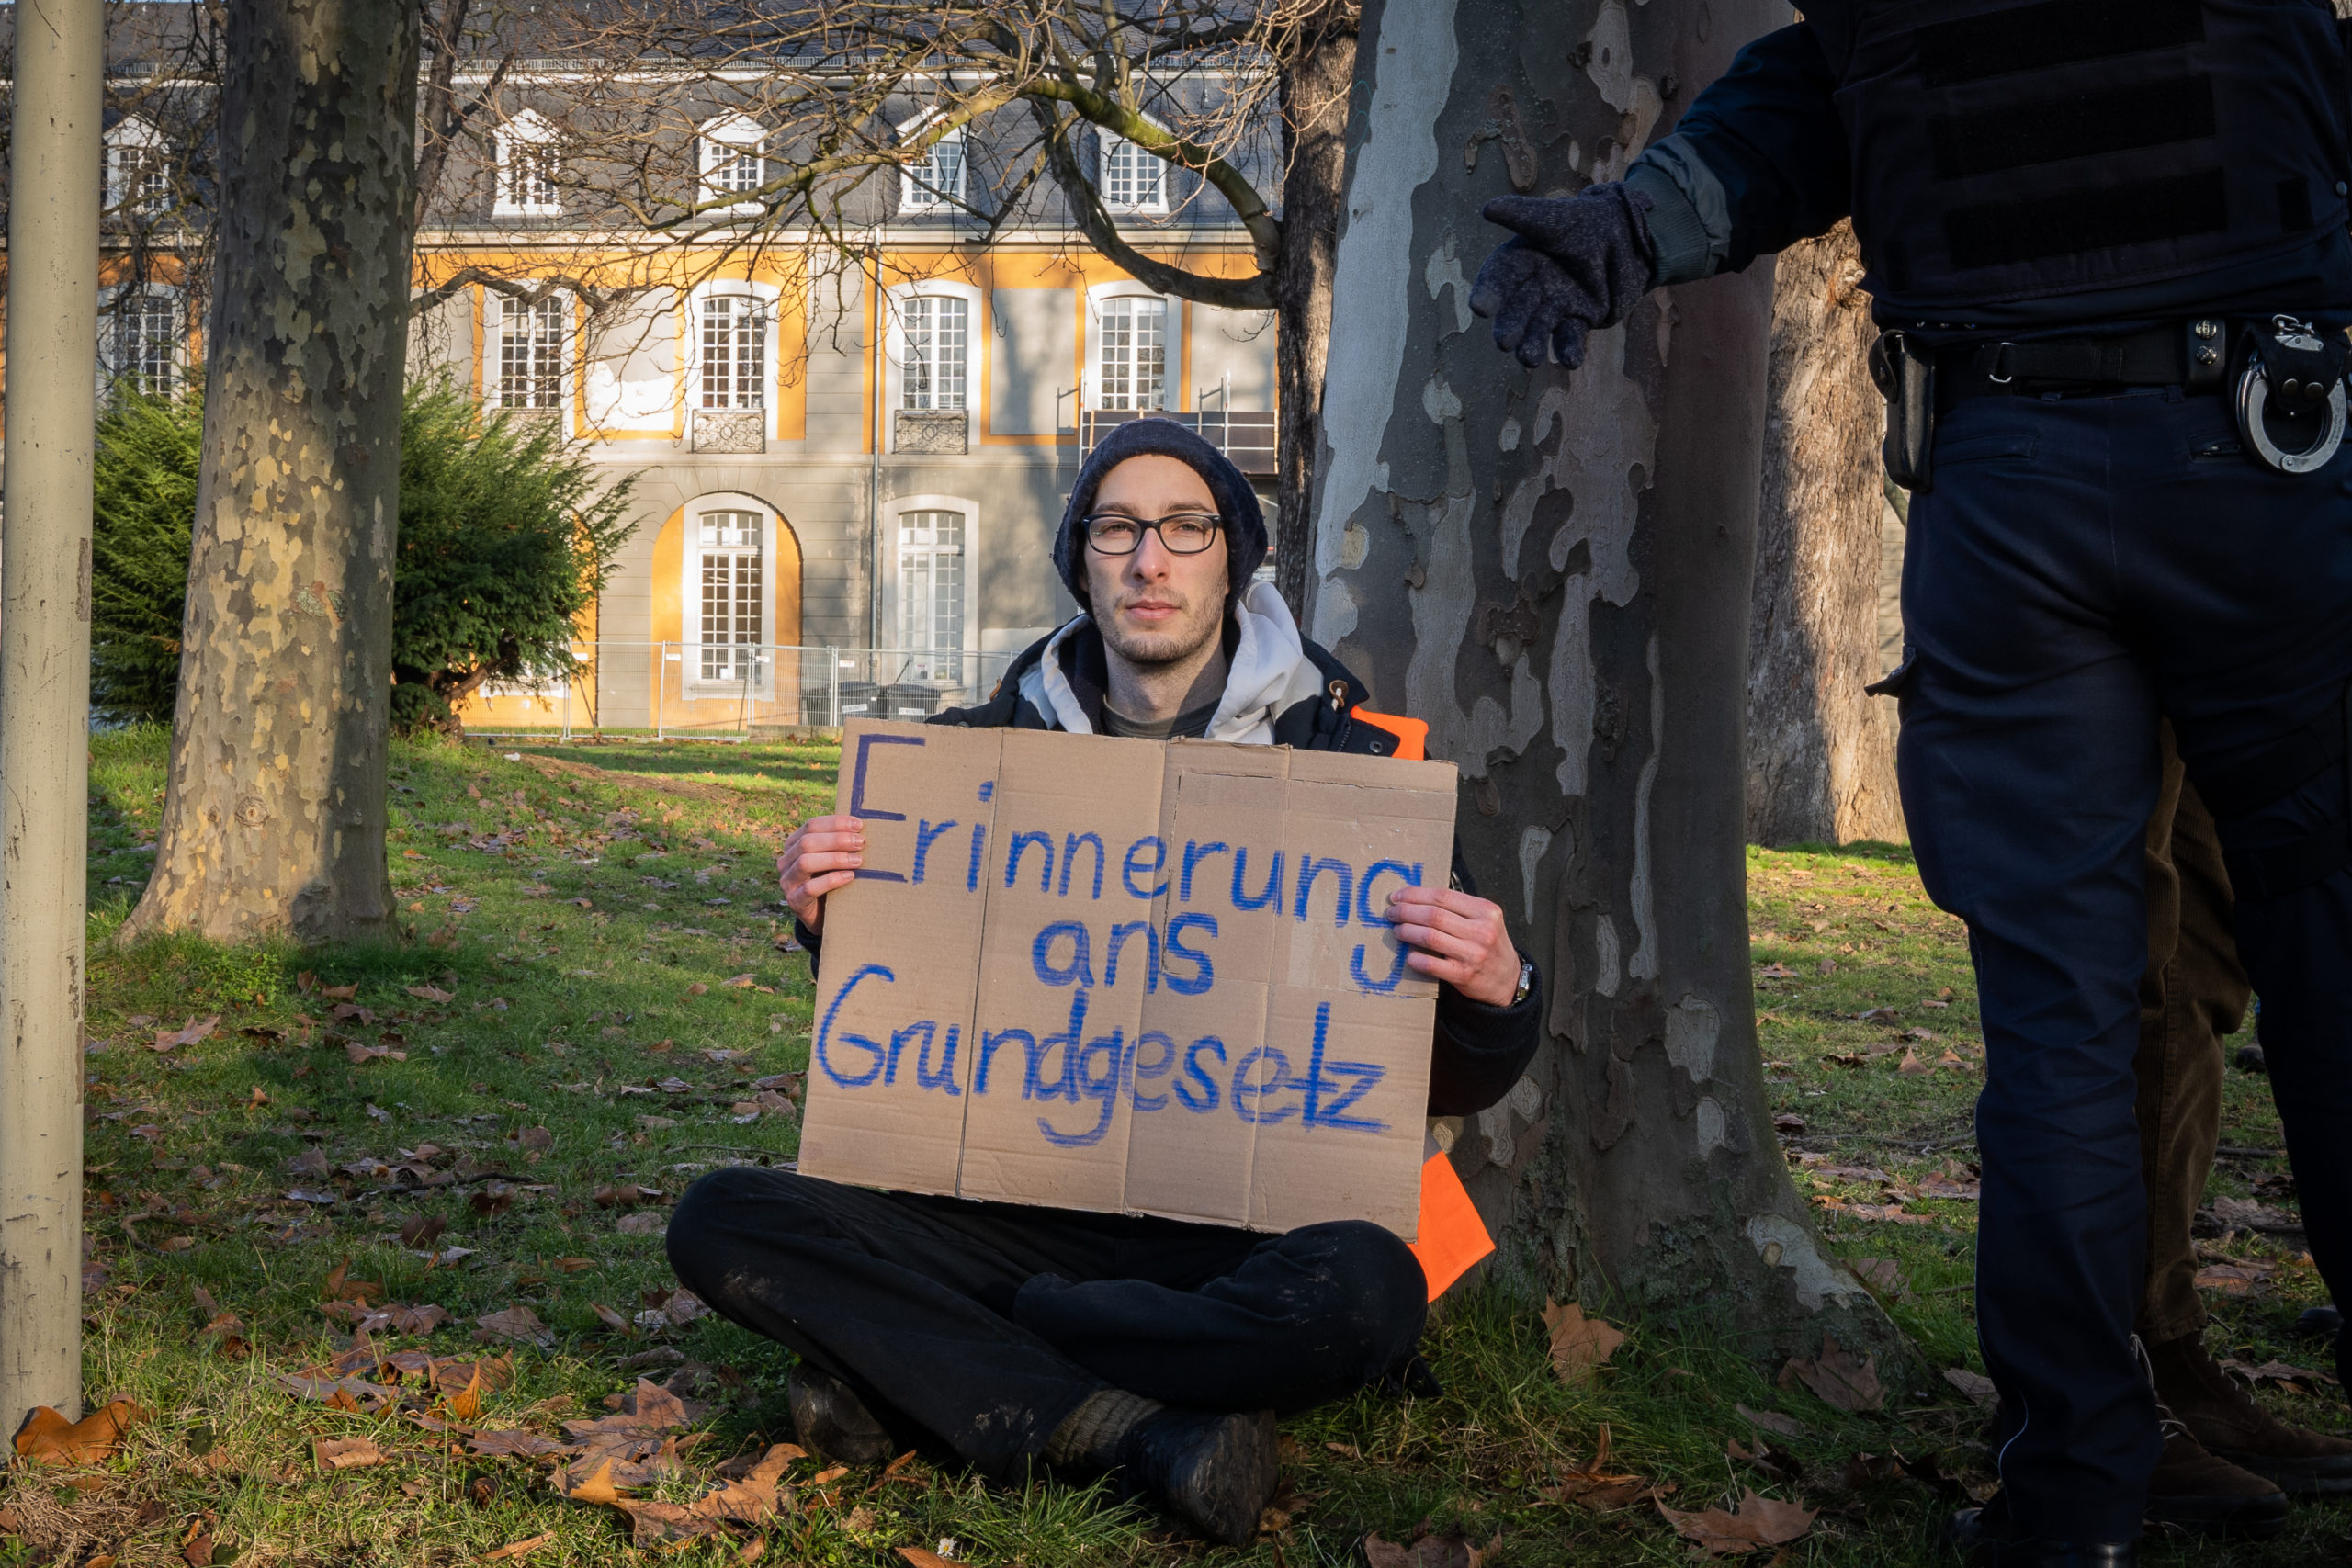 Erinnerung
ans
Grundgesetz